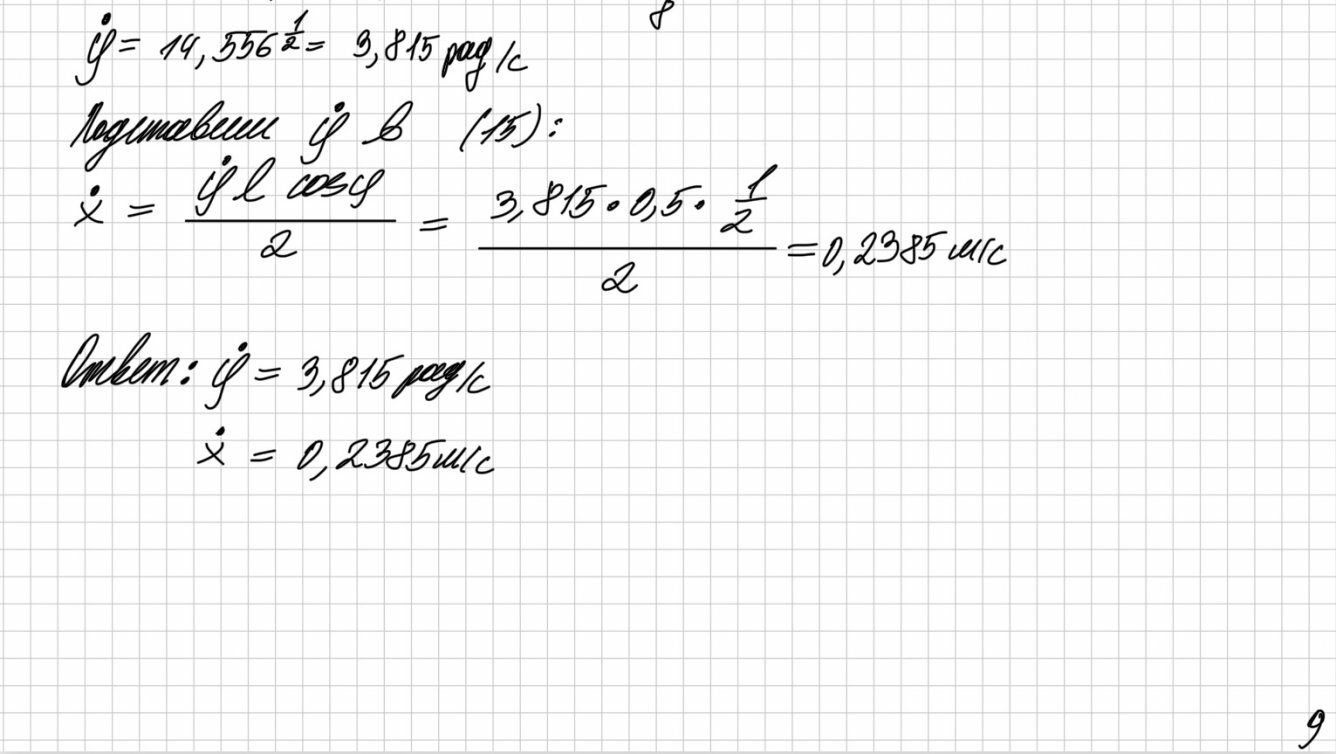 8
φ̇ = 14,556^{1/2} = 3,815 рад/с
Подставим φ̇ в (15):
ẋ = \frac{φ̇ l cosφ}{2} = \frac{3,815 · 0,5 · \frac{1}{2}}{2} = 0,2385 м/с
Ответ: φ̇ = 3,815 рад/с
ẋ = 0,2385 м/с
9